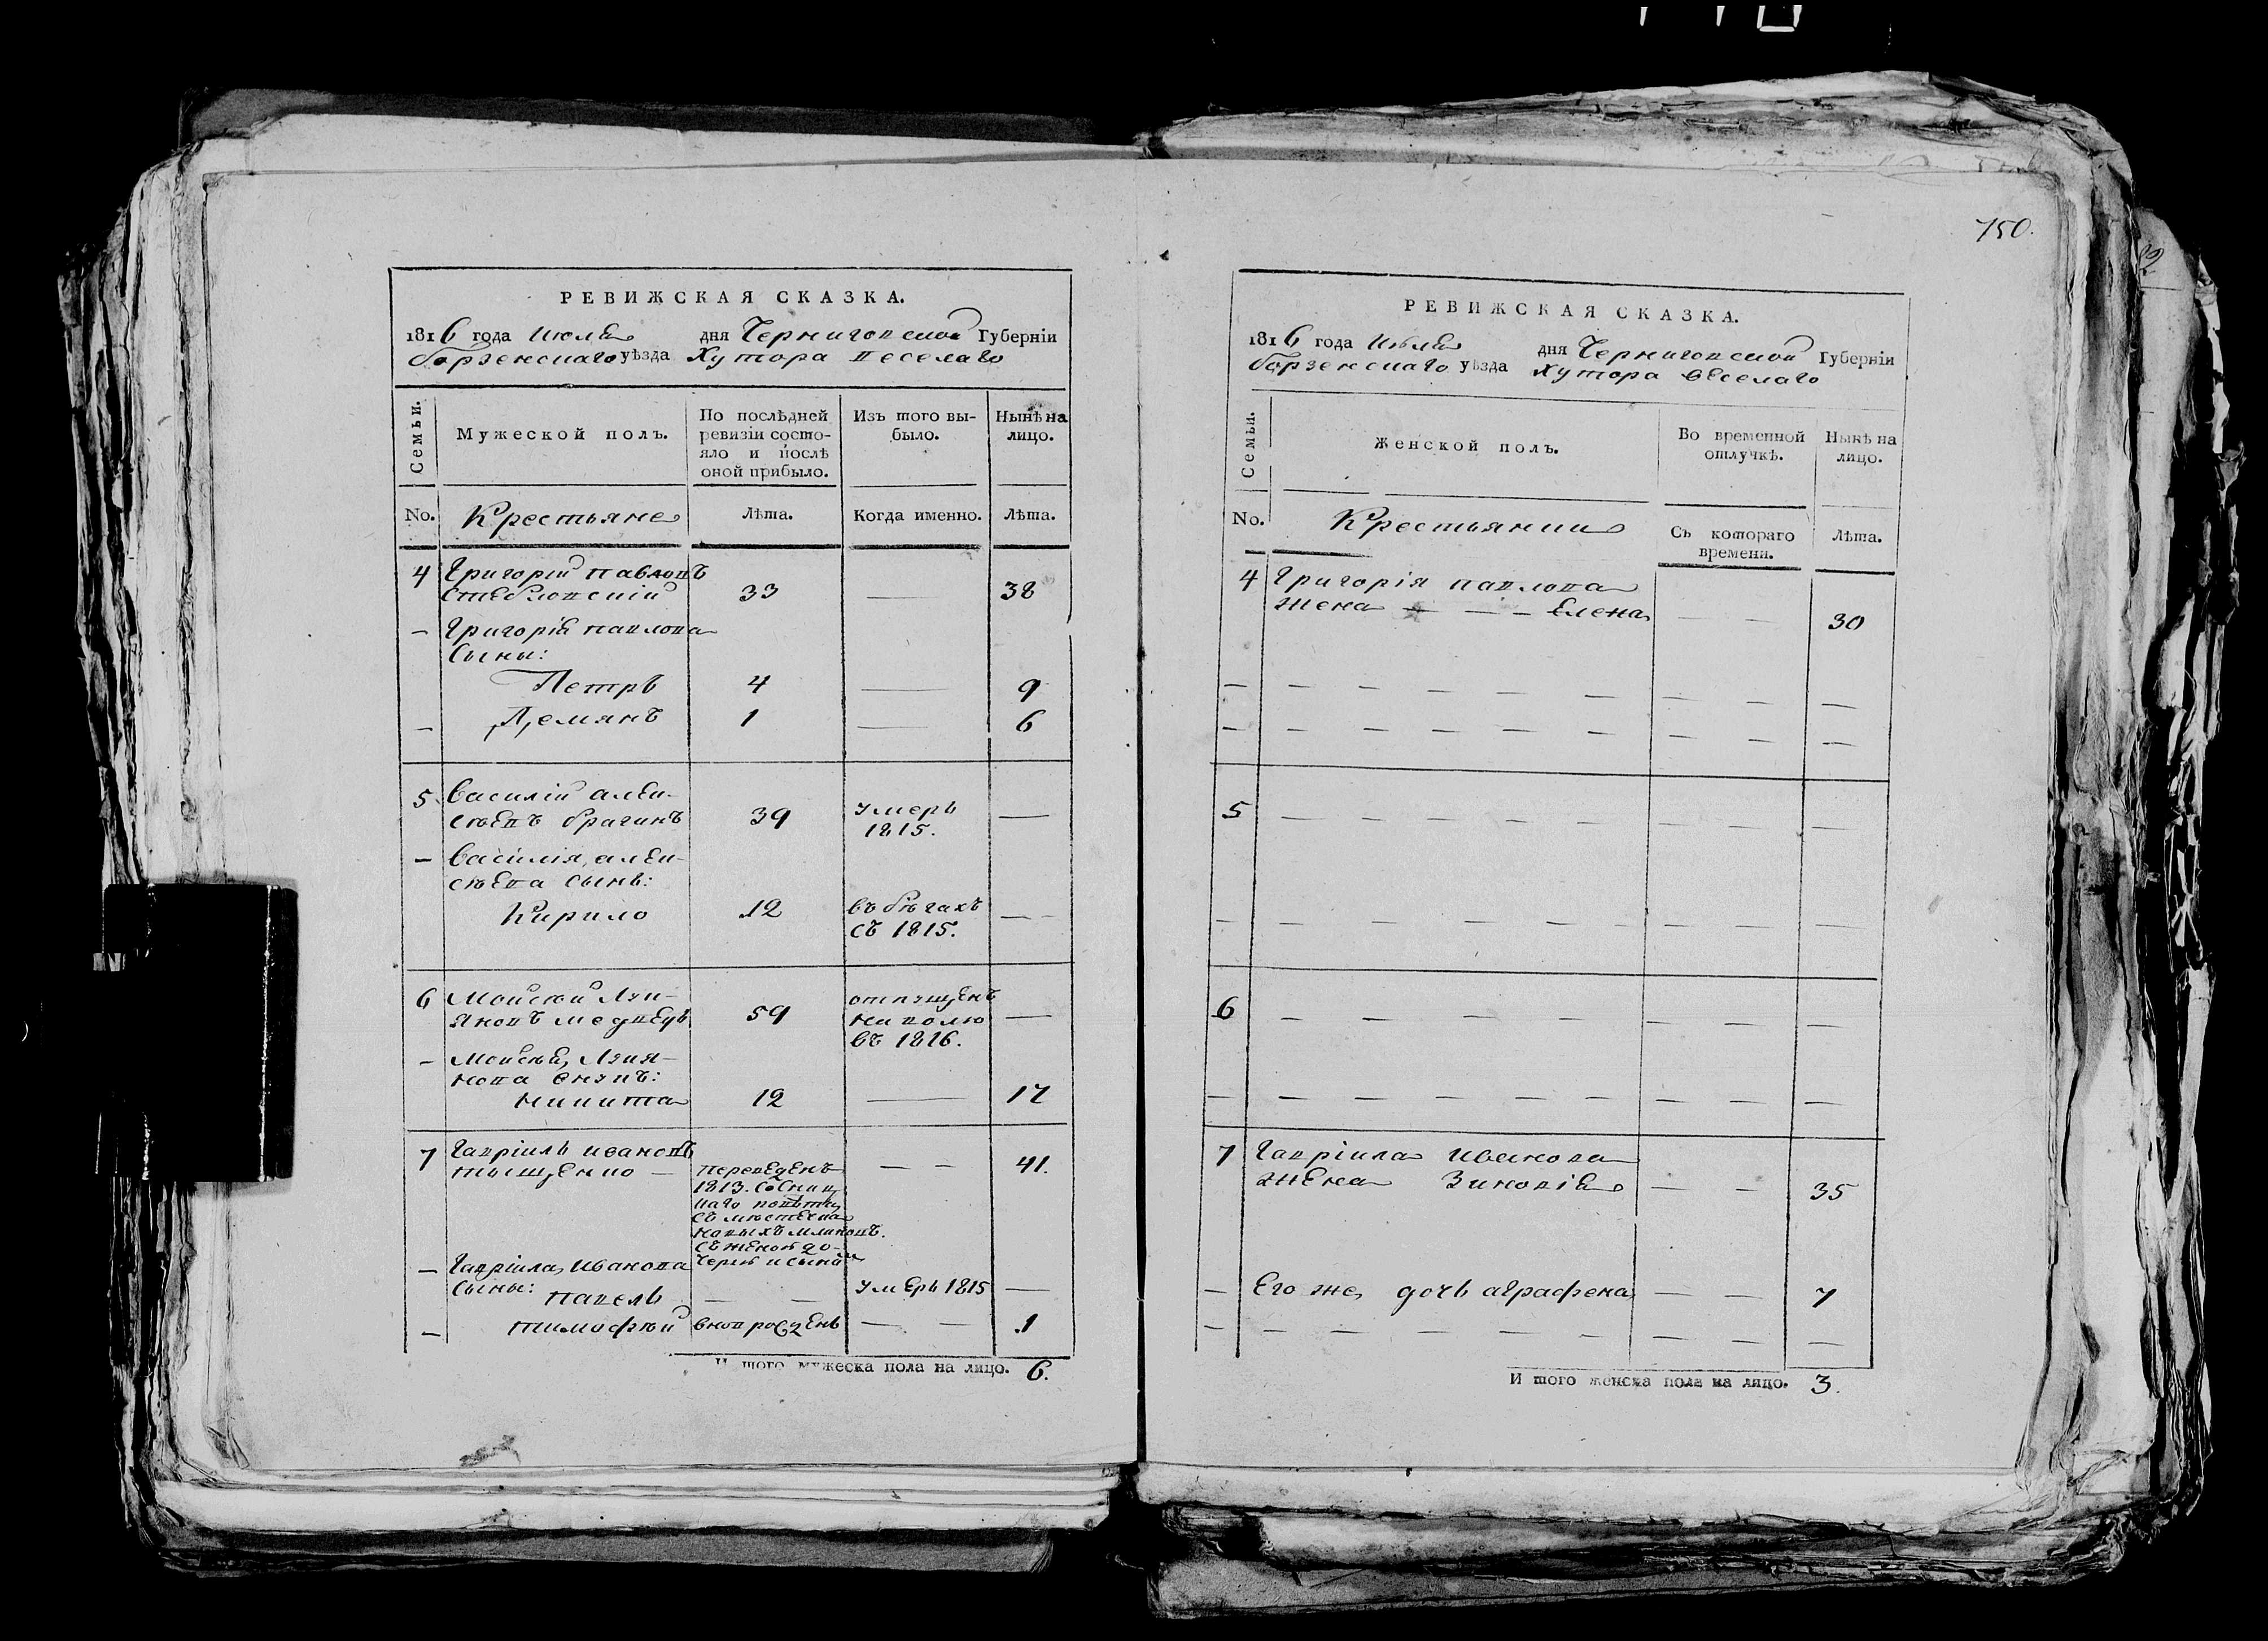 750.
РЕВИЖСКАЯ СКАЗКА.
1816 года Июля дня Черниговской Губерніи
борзенскаго уѣзда Хутора веселаго
Семьи.
Мужеской полъ.
По послѣдней
ревизіи состо-
яло и послѣ
оной прибыло.
Изъ того вы-
было.
Нынѣ на
лицо.
No.
Крестьяне
Лѣта.
Когда именно.
Лѣта.
4 Григорій павловъ
Стебловскій 33 — 38
— Григорія павлова
Сыны:
Петръ 4 — 9
— Демянъ 1 — 6
5 Василій алек-
сѣевъ брагинъ 39 умеръ — 
1815.
— Василія алек-
сѣева сынъ:
Кирило 12 въ бѣгахъ —
съ 1815.
6 Мойсей Луки-
яновъ медведь 59 отпущенъ —
на волю
въ 1816.
— Мойсея, Лукия-
нова внукъ:
никита 12 — 17
7 Гавріилъ ивановъ
тыщенко — переведенъ — — 41.
1813.
съ женой до-
черю и сыномъ
— Гавріила Иванова
Сыны: павелъ — — умеръ 1815 —
— тимофѣй вновь рожденъ — — 1
И того мужеска пола на лицо. 6.
РЕВИЖСКАЯ СКАЗКА.
1816 года Июля дня Черниговской Губерніи
борзенскаго уѣзда Хутора веселаго
Семьи.
Женской полъ.
Во временной
отлучкѣ.
Нынѣ на
лицо.
No.
Крестьянки
Съ котораго
времени.
Лѣта.
4 Григорія павлова
жена — — — Елена — — 30
— — — — — — — — —
— — — — — — — — —
5 — — — — — — — —
— — — — — — — —
6 — — — — — — —
— — — — — — — — —
7 Гавріила Иванова
жена Зиновія — — 35
— Его же, дочь аграфена — — 7
— — — — — — — — —
И того женска пола на лицо. 3.